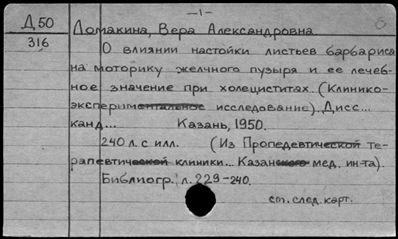 -1-
Д 50
316
Ломакина, Вера Александровна
О влиянии настойки листьев барбариса
на моторику желчного пузыря и ее лечеб-
ное значение при холециститах. (Клинико-
экспериментальное исследование). Дисс...
канд... Казань, 1950.
240 л. с илл. (Из Пропедевтической те-
рапевтической клиники... Казанского мед. ин-та).
Библиогр.: л. 229-240.
см. след. карт.